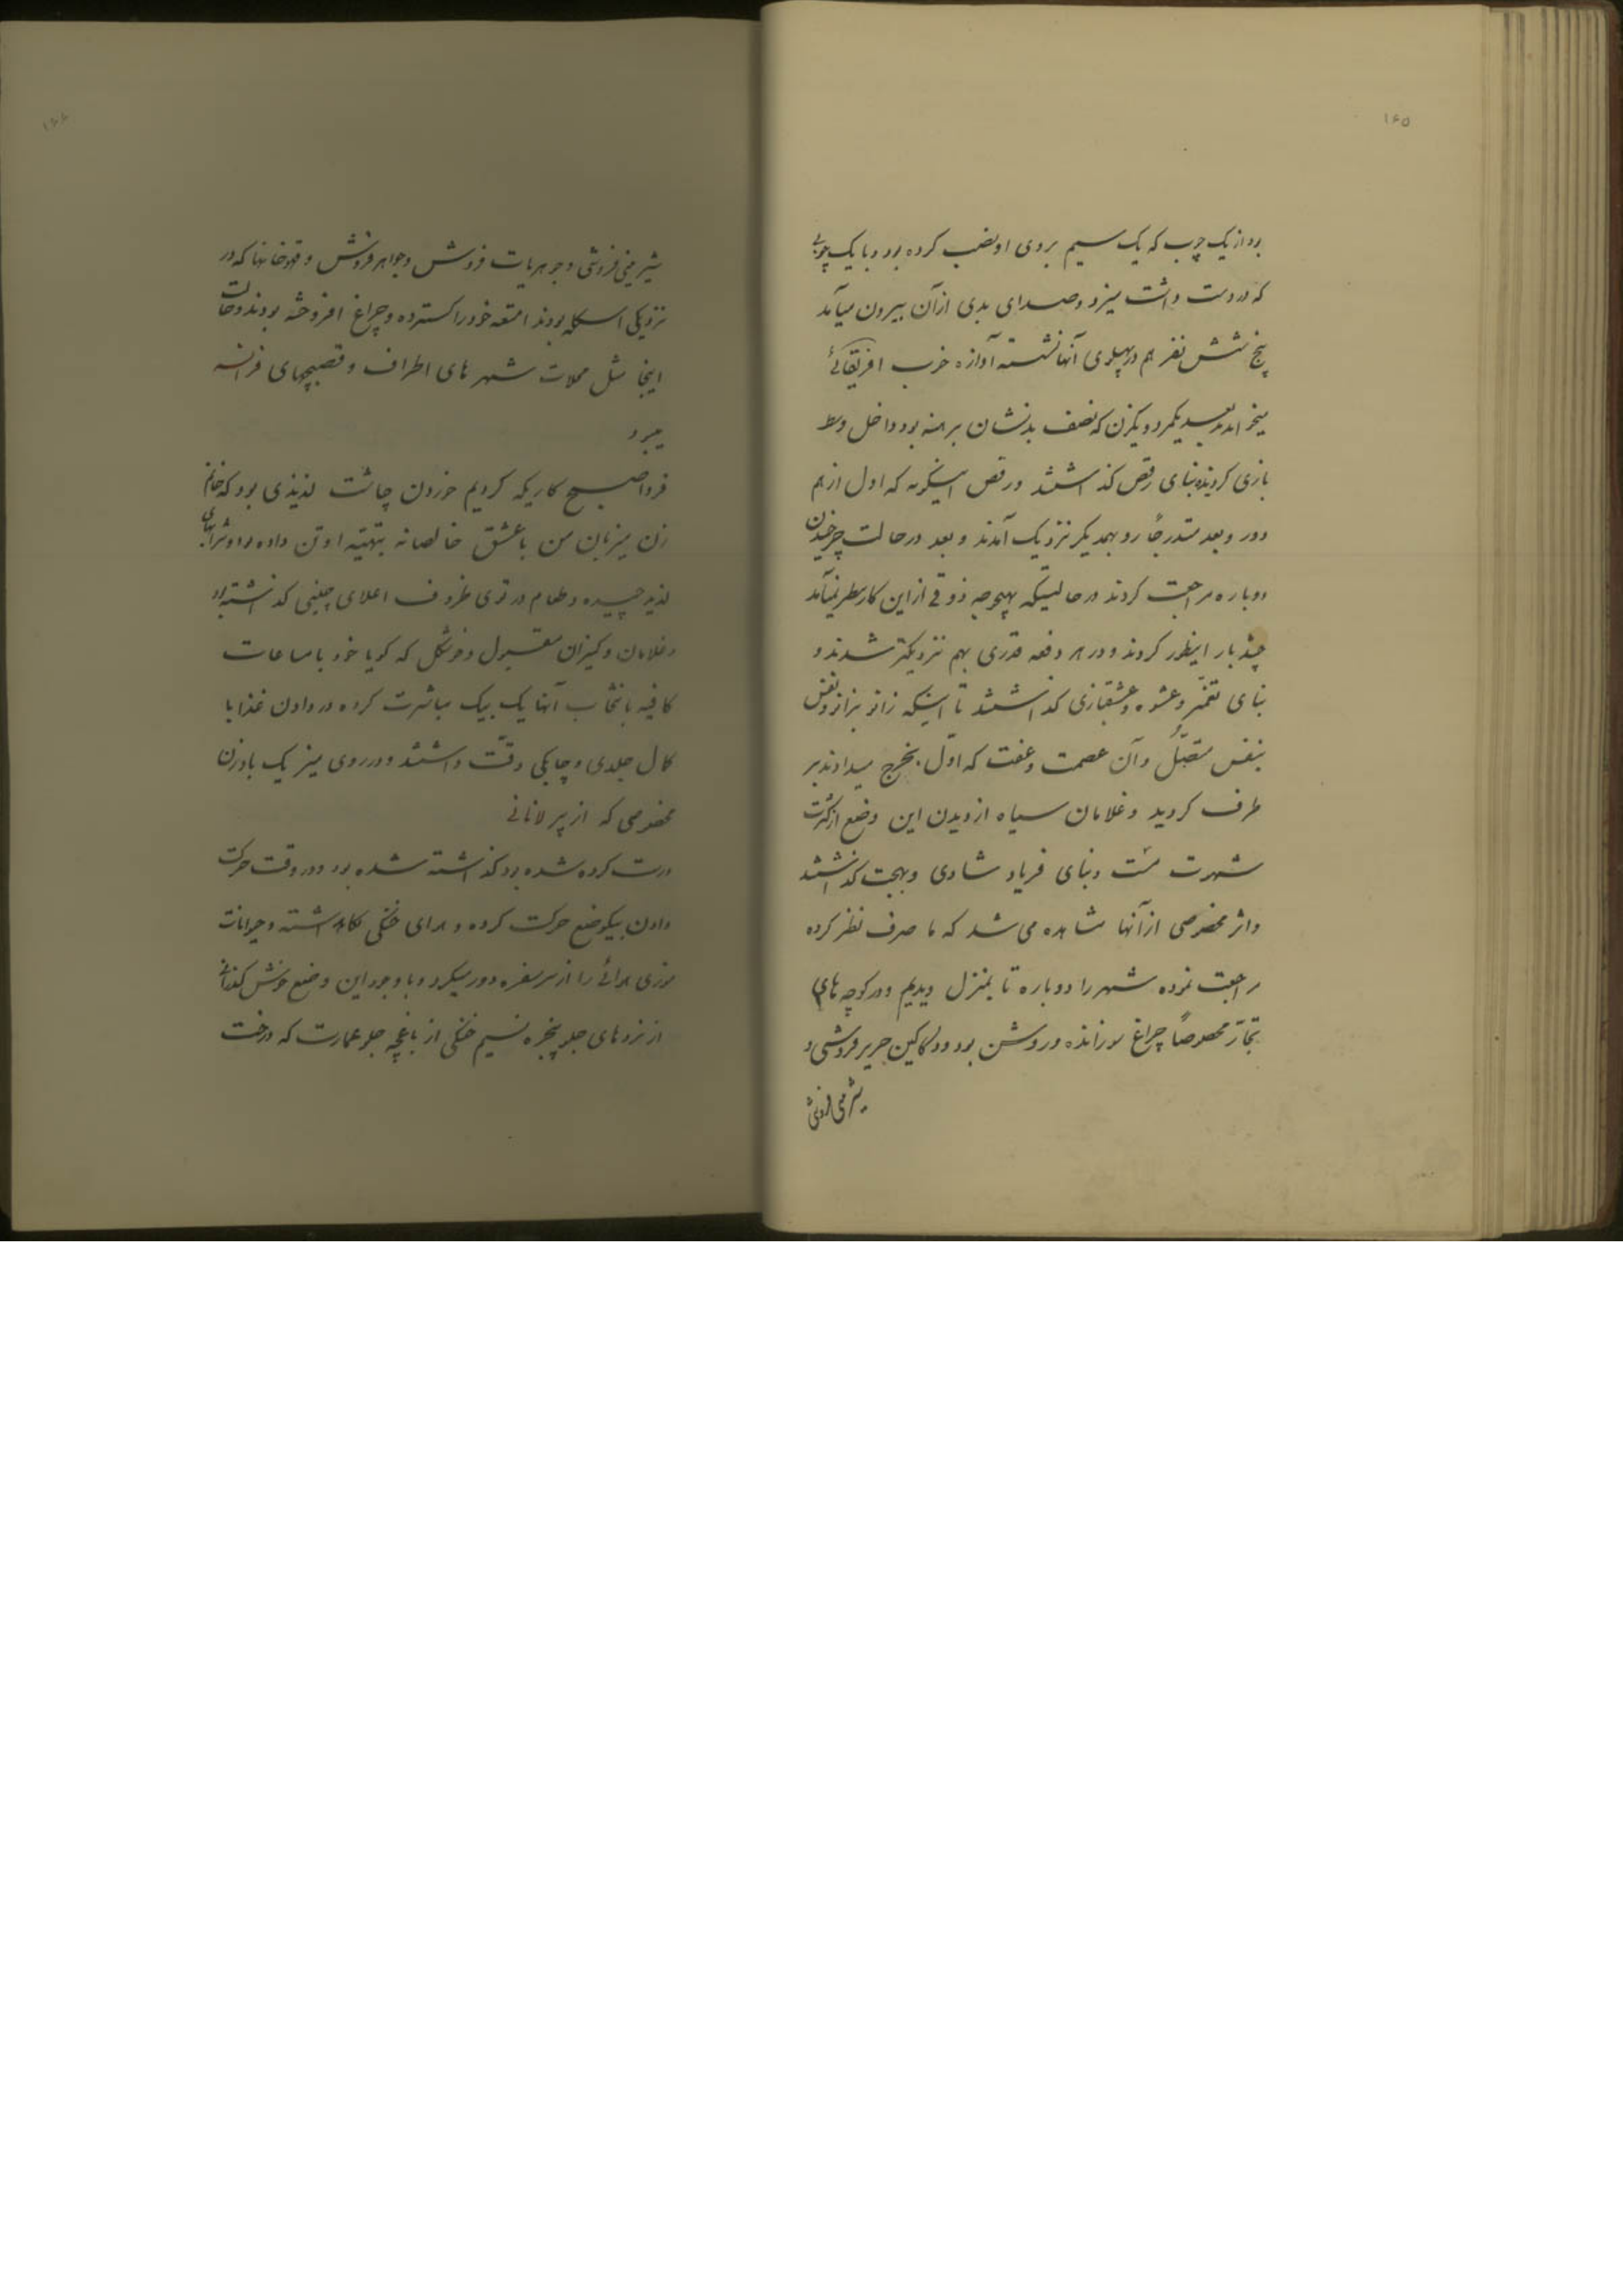 ۱۶۵
بود از یک چوب که یک سیم بروی او نصب کرده بود و با یک چوبی
که در دست داشت میزد و صدای بدی از آن بیرون میآمد
پنج شش نفر هم در پهلوی آنها نشسته آوازه خوب افریقائی
میخواندند بعد یکمرد و یکزن که نصف بدنشان برهنه بود داخل وسط
بازی گردیده بنای رقص گذاشتند و رقص اینگونه که اول از هم
دور و بعد متدرجاً رو بهمدیگر نزدیک آمدند و بعد در حالت چرخیدن
دوباره مراجعت کردند در حالیکه بهیچوجه ذوقی از این کار بنظر نمیآمد
چند بار اینطور کردند و در هر دفعه قدری بهم نزدیکتر شدند و
بنای تغمّز و عشوه و عشقبازی گذاشتند تا اینکه زانو بزانو و نفس
بنفس متصل و آن عصمت و عفت که اوّل بخرج میدادند بر
طرف گردید و غلامان سیاه از دیدن این وضع از کثرت
شهوت مست و بنای فریاد شادی و بهجت گذاشتند
و اثر مخصوصی از آنها مشاهده می شد که ما صرف نظر کرده
مراجعت نموده شهر را دوباره تا بمنزل دیدیم و در کوچه های
تجار مخصوصاً چراغ سوزانده و روشن بود و دکاکین حریر فروشی و
شیرینی فروشی
۱۶۶
شیرینی فروشی و جوهریات فروش و جواهر فروش و قهوه خانها که در
نزدیکی اسکله بودند امتعه خود را گسترده و چراغ افروخته بودند و حالت
اینجا مثل محلات شهر های اطراف و قصبچهای فرانسه
میبرد
فردا صبح کاریکه کردیم خوردن چاشت لذیذی بود که خانم
زن میزبان من با عشق خالصانه بتهیّه او تن داده بود و شرابهای
لذیذ چیده و طعام در توی ظروف اعلای چینی گذاشته بود
و غلامان و کنیزان مقبول و خوشگل که گویا خود با ساعات
کافیه بانتخاب آنها یک بیک مباشرت کرده در دادن غذا با
کمال جلدی و چابکی دقّت داشتند و در روی میز یک بادزن
مخصوصی که از پر لانانی
درست کرده شده بود گذاشته شده بود و در وقت حرکت
دادن بیکوضع حرکت کرده و هوای خنکی نگاه داشته و حیوانات
موذی هوائی را از سر سفره دور میکرد و با وجود این وضع خوش گذرانی
از نرده های جلو پنجره نسیم خنکی از باغچه جلو عمارت که درخت